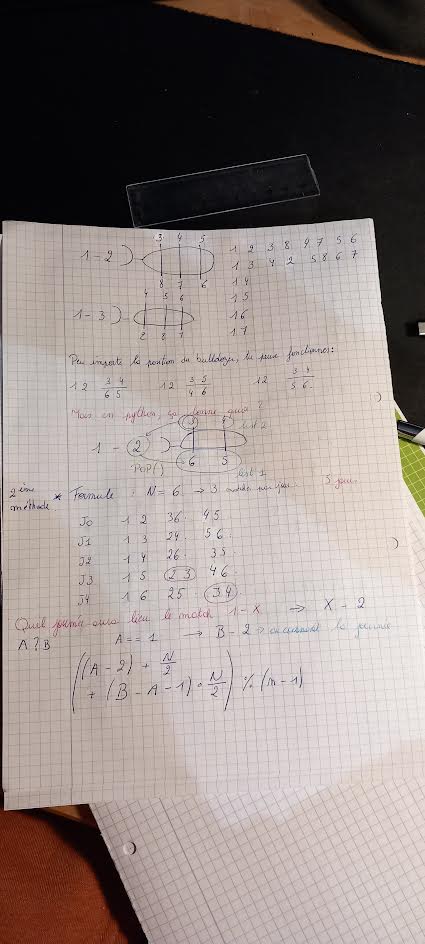 3 4 5
1 - 2
8 7 6
1 2 3 8 4 7 5 6
1 3 4 2 5 8 6 7
1 4
1 5
1 6
1 7
4 5 6
1 - 3
2 8 7
Peu importe la position du bulldozer, tu peux fonctionner:
1 2 3 4 1 2 3 5 1 2 3 4
6 5 4 6 5 6
Mais en python, ça donne quoi ?
3 4 list 2
1 - 2
POP() 6 5 list 1
2ième méthode * Formule : N = 6 → 3 matches par jour. 5 jours
J0 1 2 36. 45
J1 1 3 24. 56.
J2 1 4 26. 35
J3 1 5 23 46.
J4 1 6 25 34.
Quel journée aura lieu le match 1-X → X - 2
A ? B A == 1 → B - 2 la journée
((A - 2) + N/2
+ (B - A - 1) * N/2) % (n - 1)